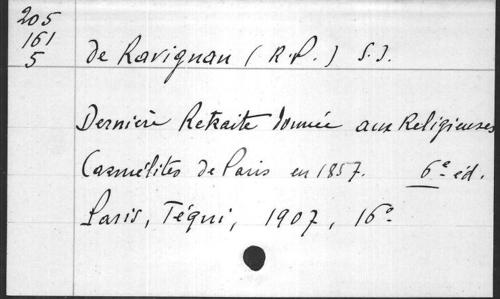 205
161
5
de Ravignan (R.P.) S.J.
Dernière Retraite donnée aux Religieuses
Carmélites de Paris en 1857. 6e éd.
Paris, Téqui, 1907, 16°